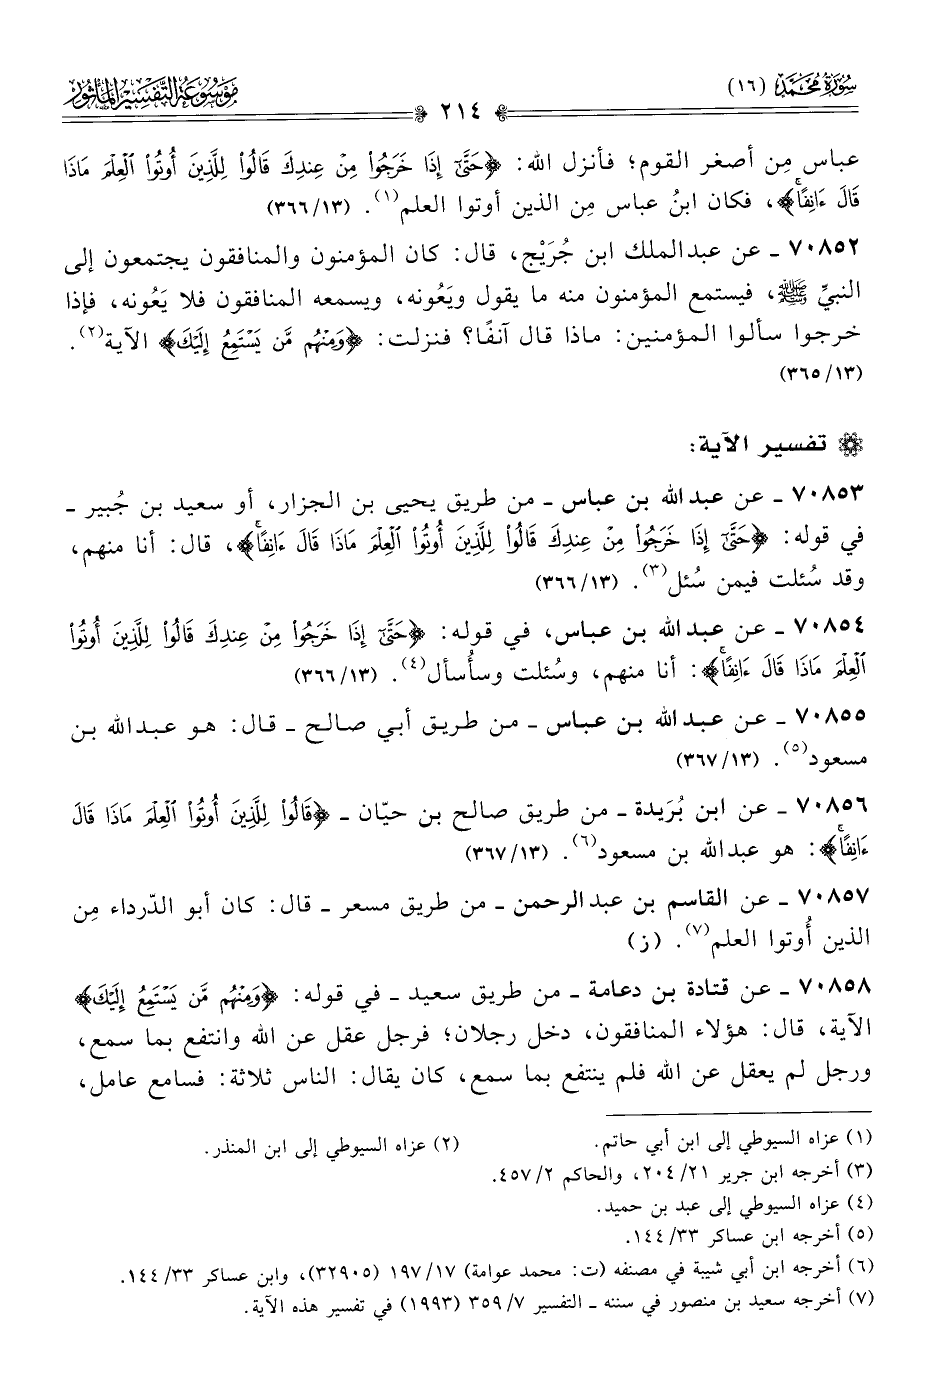 سُورَةُ مُحَمَّدٍ (١٦)
٢١٤
مَوْسُوعَةُ التَّفْسِيرِ المَأْثُورِ
عباس مِن أصغر القوم؛ فأنزل الله: ﴿حَتَّىٰٓ إِذَا خَرَجُوا۟ مِنْ عِندِكَ قَالُوا۟ لِلَّذِينَ أُوتُوا۟ ٱلْعِلْمَ مَاذَا
قَالَ ءَانِفًا﴾، فكان ابنُ عباس مِن الذين أوتوا العلم(١). (٣٦٦/١٣)
٧٠٨٥٢ ـ عن عبدالملك ابن جُرَيْج، قال: كان المؤمنون والمنافقون يجتمعون إلى
النبيِّ ﷺ، فيستمع المؤمنون منه ما يقول ويَعُونه، ويسمعه المنافقون فلا يَعُونه، فإذا
خرجوا سألوا المؤمنين: ماذا قال آنفًا؟ فنزلت: ﴿وَمِنْهُم مَّن يَسْتَمِعُ إِلَيْكَ﴾ الآية(٢).
(٣٦٥/١٣)
تفسير الآية:
٧٠٨٥٣ ـ عن عبدالله بن عباس ـ من طريق يحيى بن الجزار، أو سعيد بن جُبير ـ
في قوله: ﴿حَتَّىٰٓ إِذَا خَرَجُوا۟ مِنْ عِندِكَ قَالُوا۟ لِلَّذِينَ أُوتُوا۟ ٱلْعِلْمَ مَاذَا قَالَ ءَانِفًا﴾، قال: أنا منهم،
وقد سُئلت فيمن سُئل(٣). (٣٦٦/١٣)
٧٠٨٥٤ ـ عن عبدالله بن عباس، في قوله: ﴿حَتَّىٰٓ إِذَا خَرَجُوا۟ مِنْ عِندِكَ قَالُوا۟ لِلَّذِينَ أُوتُوا۟
ٱلْعِلْمَ مَاذَا قَالَ ءَانِفًا﴾: أنا منهم، وسُئلت وسأُسأل(٤). (٣٦٦/١٣)
٧٠٨٥٥ ـ عن عبدالله بن عباس ـ من طريق أبي صالح ـ قال: هو عبدالله بن
مسعود(٥). (٣٦٧/١٣)
٧٠٨٥٦ ـ عن ابن بُرَيدة ـ من طريق صالح بن حيّان ـ ﴿قَالُوا۟ لِلَّذِينَ أُوتُوا۟ ٱلْعِلْمَ مَاذَا قَالَ
ءَانِفًا﴾: هو عبدالله بن مسعود(٦). (٣٦٧/١٣)
٧٠٨٥٧ ـ عن القاسم بن عبدالرحمن ـ من طريق مسعر ـ قال: كان أبو الدّرداء مِن
الذين أُوتوا العلم(٧). (ز)
٧٠٨٥٨ ـ عن قتادة بن دعامة ـ من طريق سعيد ـ في قوله: ﴿وَمِنْهُم مَّن يَسْتَمِعُ إِلَيْكَ﴾
الآية، قال: هؤلاء المنافقون، دخل رجلان؛ فرجل عقل عن الله وانتفع بما سمع،
ورجل لم يعقل عن الله فلم ينتفع بما سمع، كان يقال: الناس ثلاثة: فسامع عامل،
(١) عزاه السيوطي إلى ابن أبي حاتم. (٢) عزاه السيوطي إلى ابن المنذر.
(٣) أخرجه ابن جرير ٢٠٤/٢١، والحاكم ٤٥٧/٢.
(٤) عزاه السيوطي إلى عبد بن حميد.
(٥) أخرجه ابن عساكر ١٤٤/٣٣.
(٦) أخرجه ابن أبي شيبة في مصنفه (ت: محمد عوامة) ١٩٧/١٧ (٣٢٩٠٥)، وابن عساكر ١٤٤/٣٣.
(٧) أخرجه سعيد بن منصور في سننه ـ التفسير ٣٥٩/٧ (١٩٩٣) في تفسير هذه الآية.